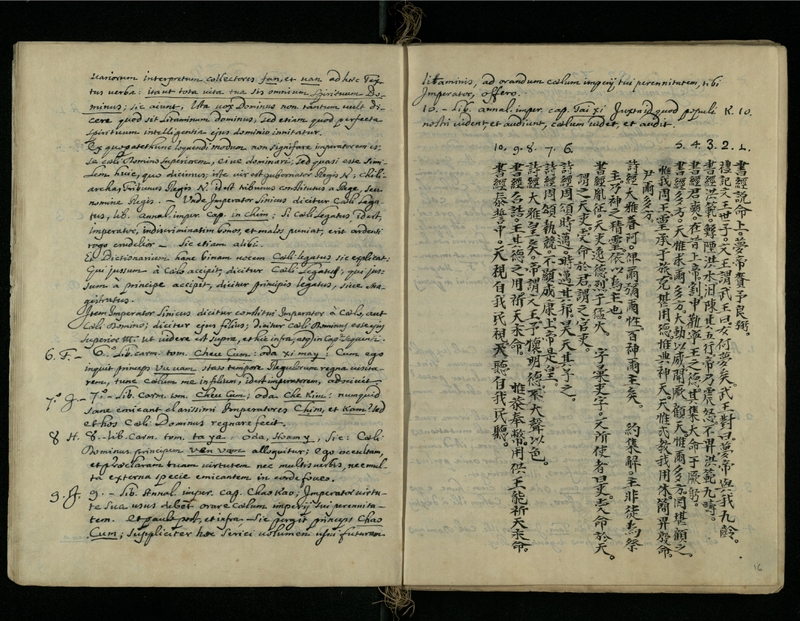 teariorum interpretum collectores fan, et nan ad hoc Tex-
tus verba: inquit tota vita tua sis omnium Spirituum Do-
minus; sic aiunt, Ista vox Dominus non tantum vult di-
cere quod sit Litaminum dominus, sed etiam quod perfecta
Spirituum intelligentia ejus dominio innitatur.
Ex quo patet hunc loquendi modum non significare imperatorem es-
se Cœli Domino superiorem, ei ve dominari; sed quasi esse simi-
lem huic, quo dicimus; iste vir est gubernator Regis N. Chili-
archa, tribunus Regis N. id est tribunus constitutus a Rege, seu
nomine Regis. Unde Imperator Sinicus dicitur Cœli Lega-
tus, lib. annal. impur. Cap. in chim; Si Cœli Legatus, id est,
Imperator, indiscriminatim bonos, et malos puniat, erit ardenti
rogo crudelior. Sic etiam alibi.
Et Dictionarium hanc binam vocem Cœli legatus sic explicat;
Qui jussum à Cœlo accipit, dicitur Cœli Legatus, qui jus-
sum a principe accipit, dicitur principis legatus, sive Ma-
gistratus.
Item Imperator Sinicus dicitur constitui Imperator à Cœlo, aut
Cœli Domino; dicitur ejus filius; dicitur Cœli Dominus esse
superior Ut videre est supra, et hic infra, atque in Cap. sequenti.
6. F. 6.° Lib. carm. tom. Cheu Cum; oda xi may; Cum ego
inquit princeps Vu vam, stato tempore Regulorum regna vise-
rem, tunc Cœlum me in filium, id est imperatorem, adscivit
7.° G. 7.° Lib. carm. tom. Cheu Cum; oda Che Kim: numquid
sane emicant clarissimi Imperatores Chim, et Kam? sed
et hos Cœli Dominus regnare fecit.
8 H. 8. lib. Carm. tom. ta ya. Oda, Hoam y, sic: Cœli
Dominus principem Ven Vam alloquitur; Ego occultam,
et præclaram tuam virtutem nec multis verbis, nec mul-
ta externa specie emicantem in corde foveo.
9. J. 9. Lib. Annal. impur. cap. Chao Kao; Imperator virtu-
te sua usus debet orare Cœlum imperij sui perennita-
tem. et paulo post, et infra. Sic pergit princeps Chao
Cum; Suppliciter hoc Serici volumen usui futurum
litaminis, ad orandum cœlum imperij tui perennitatem, tibi
Imperator, offero.
10. Lib. annal. impur. cap. Tai xi Juxta id quod populi K. 10.
nostri vident, et audiunt, cœlum videt, et audit.
10. 9. 8. 7. 6. 5. 4. 3. 2. 1.
書經說命上。夢帝賚予良弼。
禮記文王世子。文王謂武王曰女何夢矣。武王對曰夢帝與我九齡。
書經洪範。鯀陻洪水汨陳其五行帝乃震怒不畀洪範九疇。
書經君奭。在昔上帝割申勸寧王之德。其集大命于厥躬。
書經多方。天惟求爾多方大動以威開厥顧天惟爾多方罔堪顧之。
惟我周王靈承于旅克堪用德惟典神天。天惟式教我用休簡畀殷命。
尹爾多方。
詩經大雅卷阿。俾爾彌爾性。百神爾主矣。 約集解。主非徒為祭
主。乃神之精靈依以為主也。
書經胤征。天吏逸德烈于猛火。 字彙吏字。又所使者曰吏。受命於天。
謂之天吏。受命於君謂之官吏。
詩經周頌時邁。時邁其邦昊天其子之。
詩經周頌執競。不顯成康上帝是皇。
詩經大雅皇矣。帝謂文王予懷明德不大聲以色。
書經召誥。王其德之用祈天永命。 惟恭奉幣用供王能祈天永命。
書經泰誓中。天視自我民視天聽自我民聽。
16